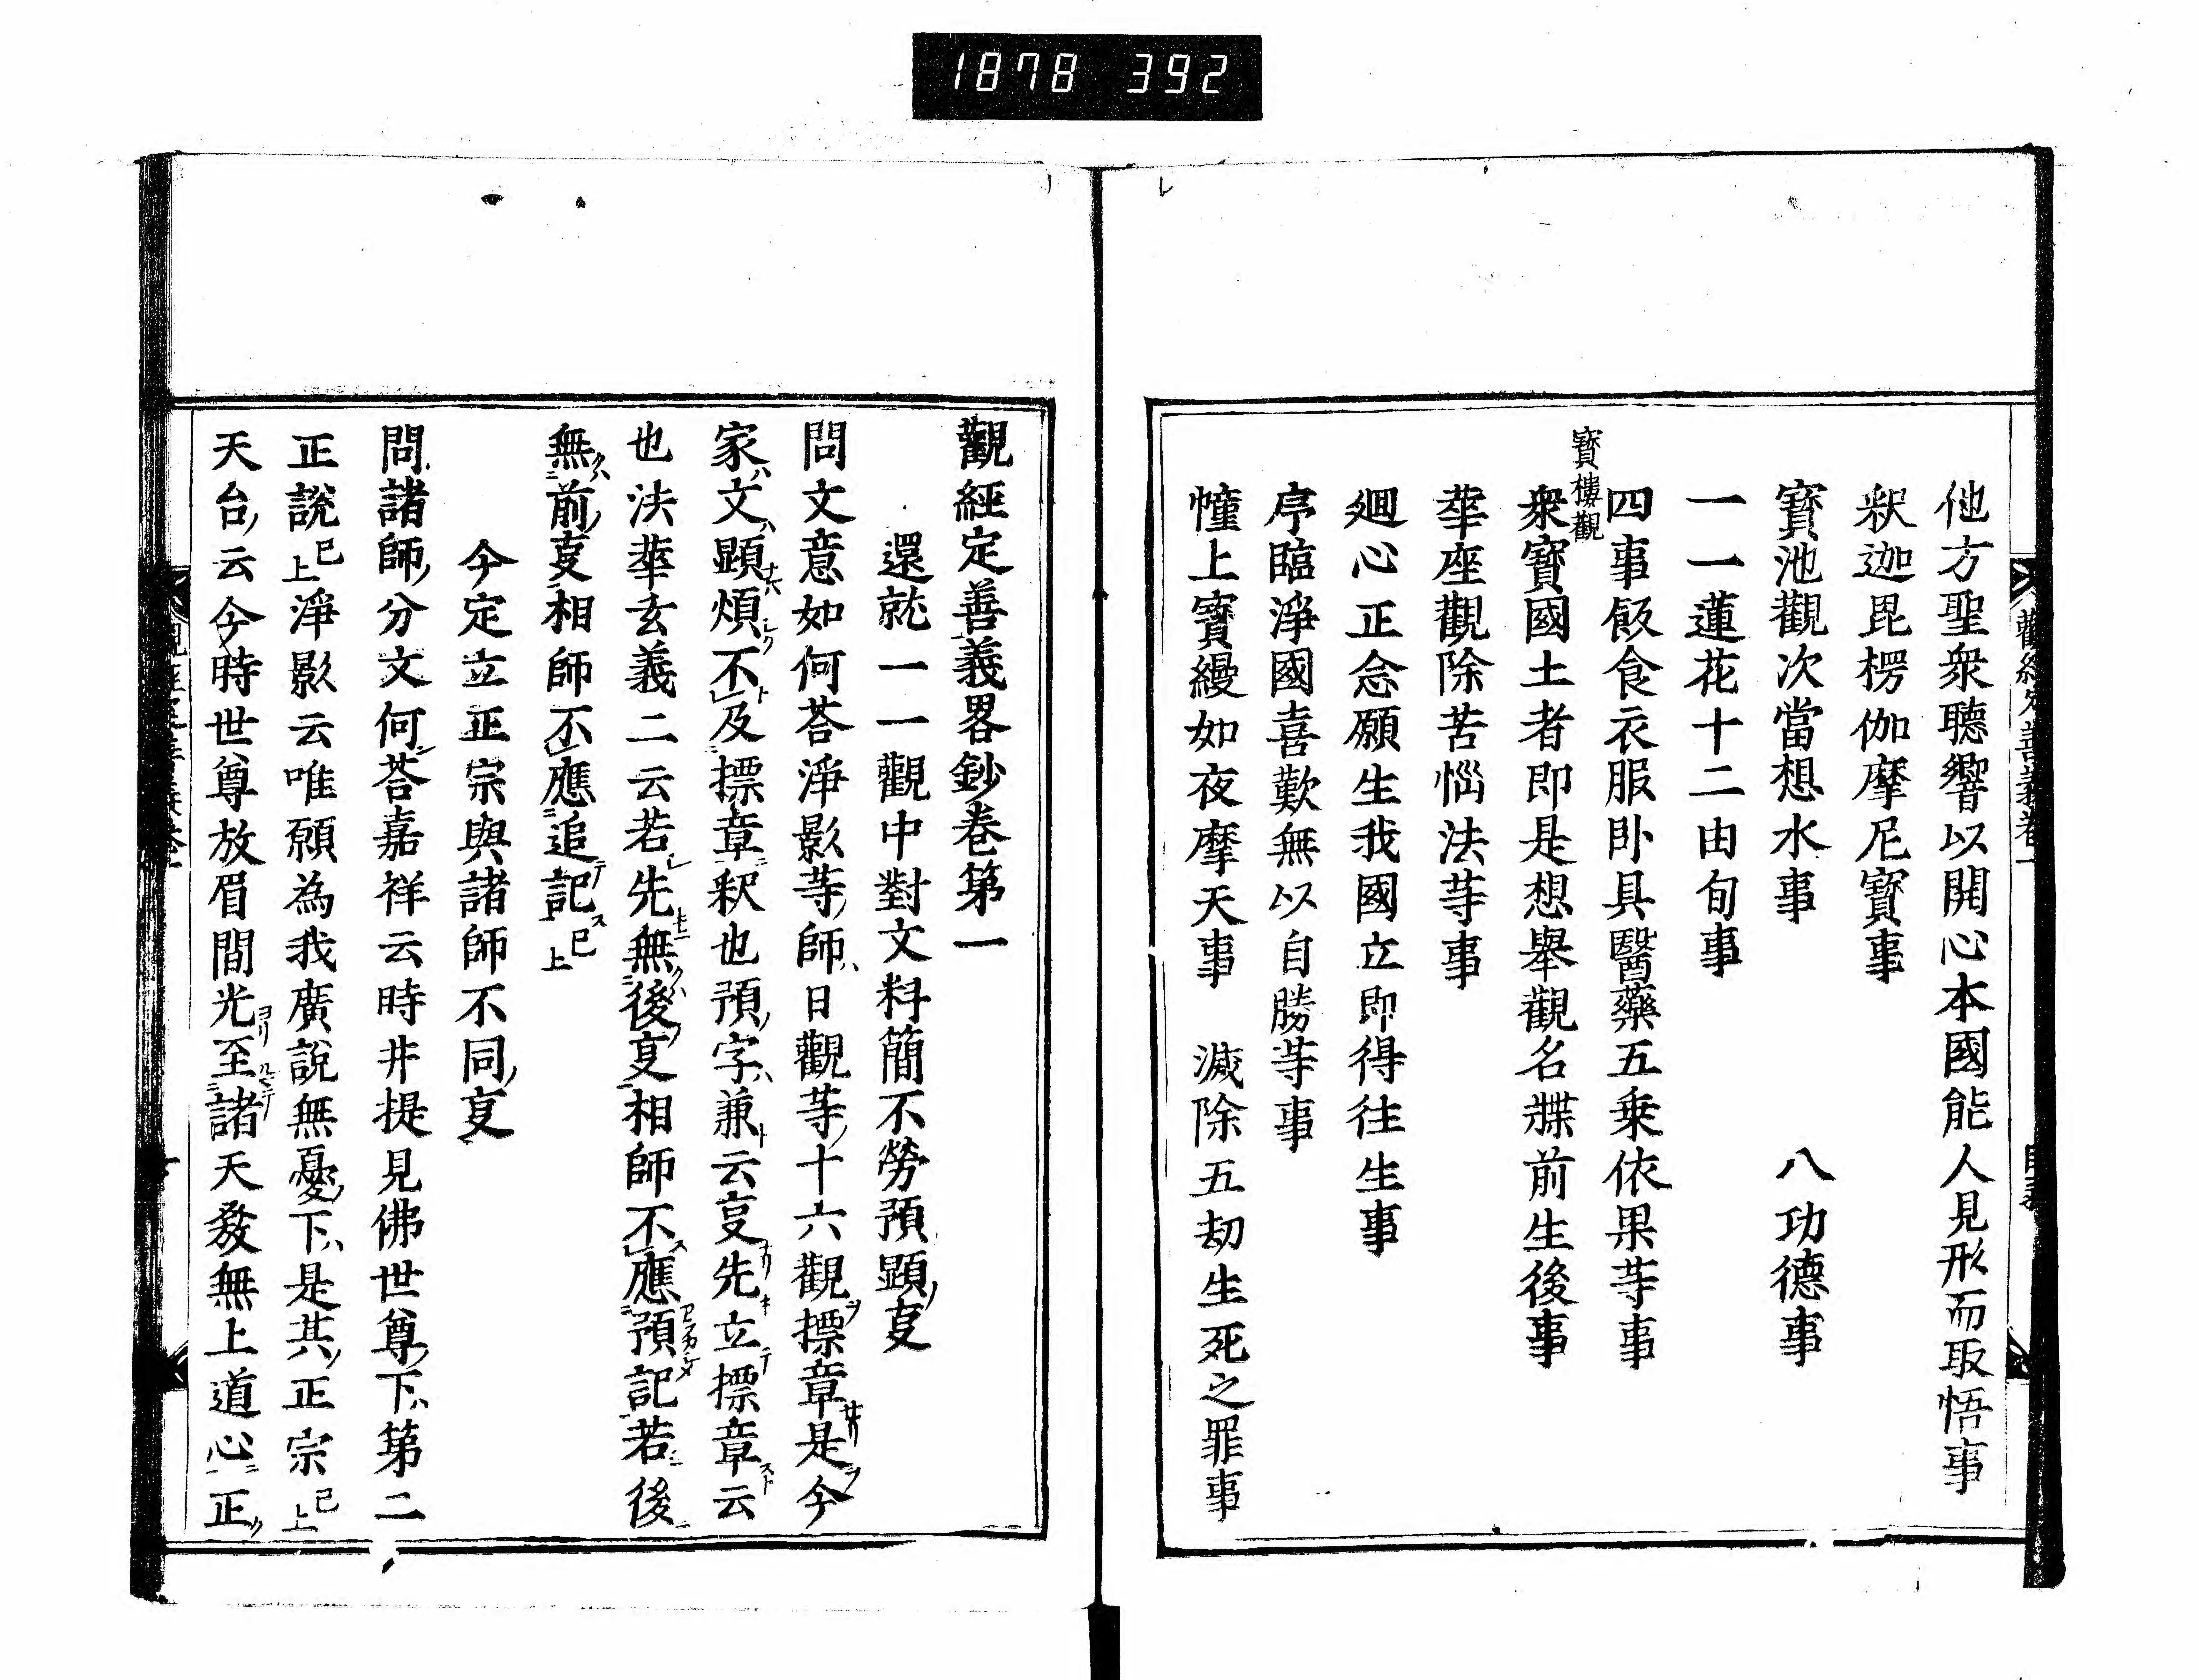 1878 392
他方聖衆聽響以開心本國能人見形而取悟事
釈迦毘楞伽摩尼寳事
寳池觀次當想水事 八功德事
一一蓮花十二由旬事
四事飯食衣服卧具醫藥五乗依果䓁事
寳樓觀
衆寳國土者即是想舉觀名牒前生後事
華座觀除苦惱法䓁事
廻心正念願生我國立即得往生事
序臨淨國喜歎無以自勝䓁事
幢上寳縵如夜摩天事 滅除五劫生死之罪事
觀經定善義畧鈔卷第一
還就一一觀中對文料簡不勞預顕㕝
問文意如何荅淨影䓁師日觀䓁十六觀摽章是今
家文顕煩不及摽章釈也預字兼云㕝先立摽章云
也法華玄義二云若先無後㕝相師不應預記若後
無前㕝相師不應追記已上
今定立正宗與諸師不同㕝
問諸師分文何荅嘉祥云時井提見佛世尊下第二
正說已上淨影云唯願為我廣說無憂下是其正宗已上
天台云今時世尊放眉間光至諸天發無上道心正